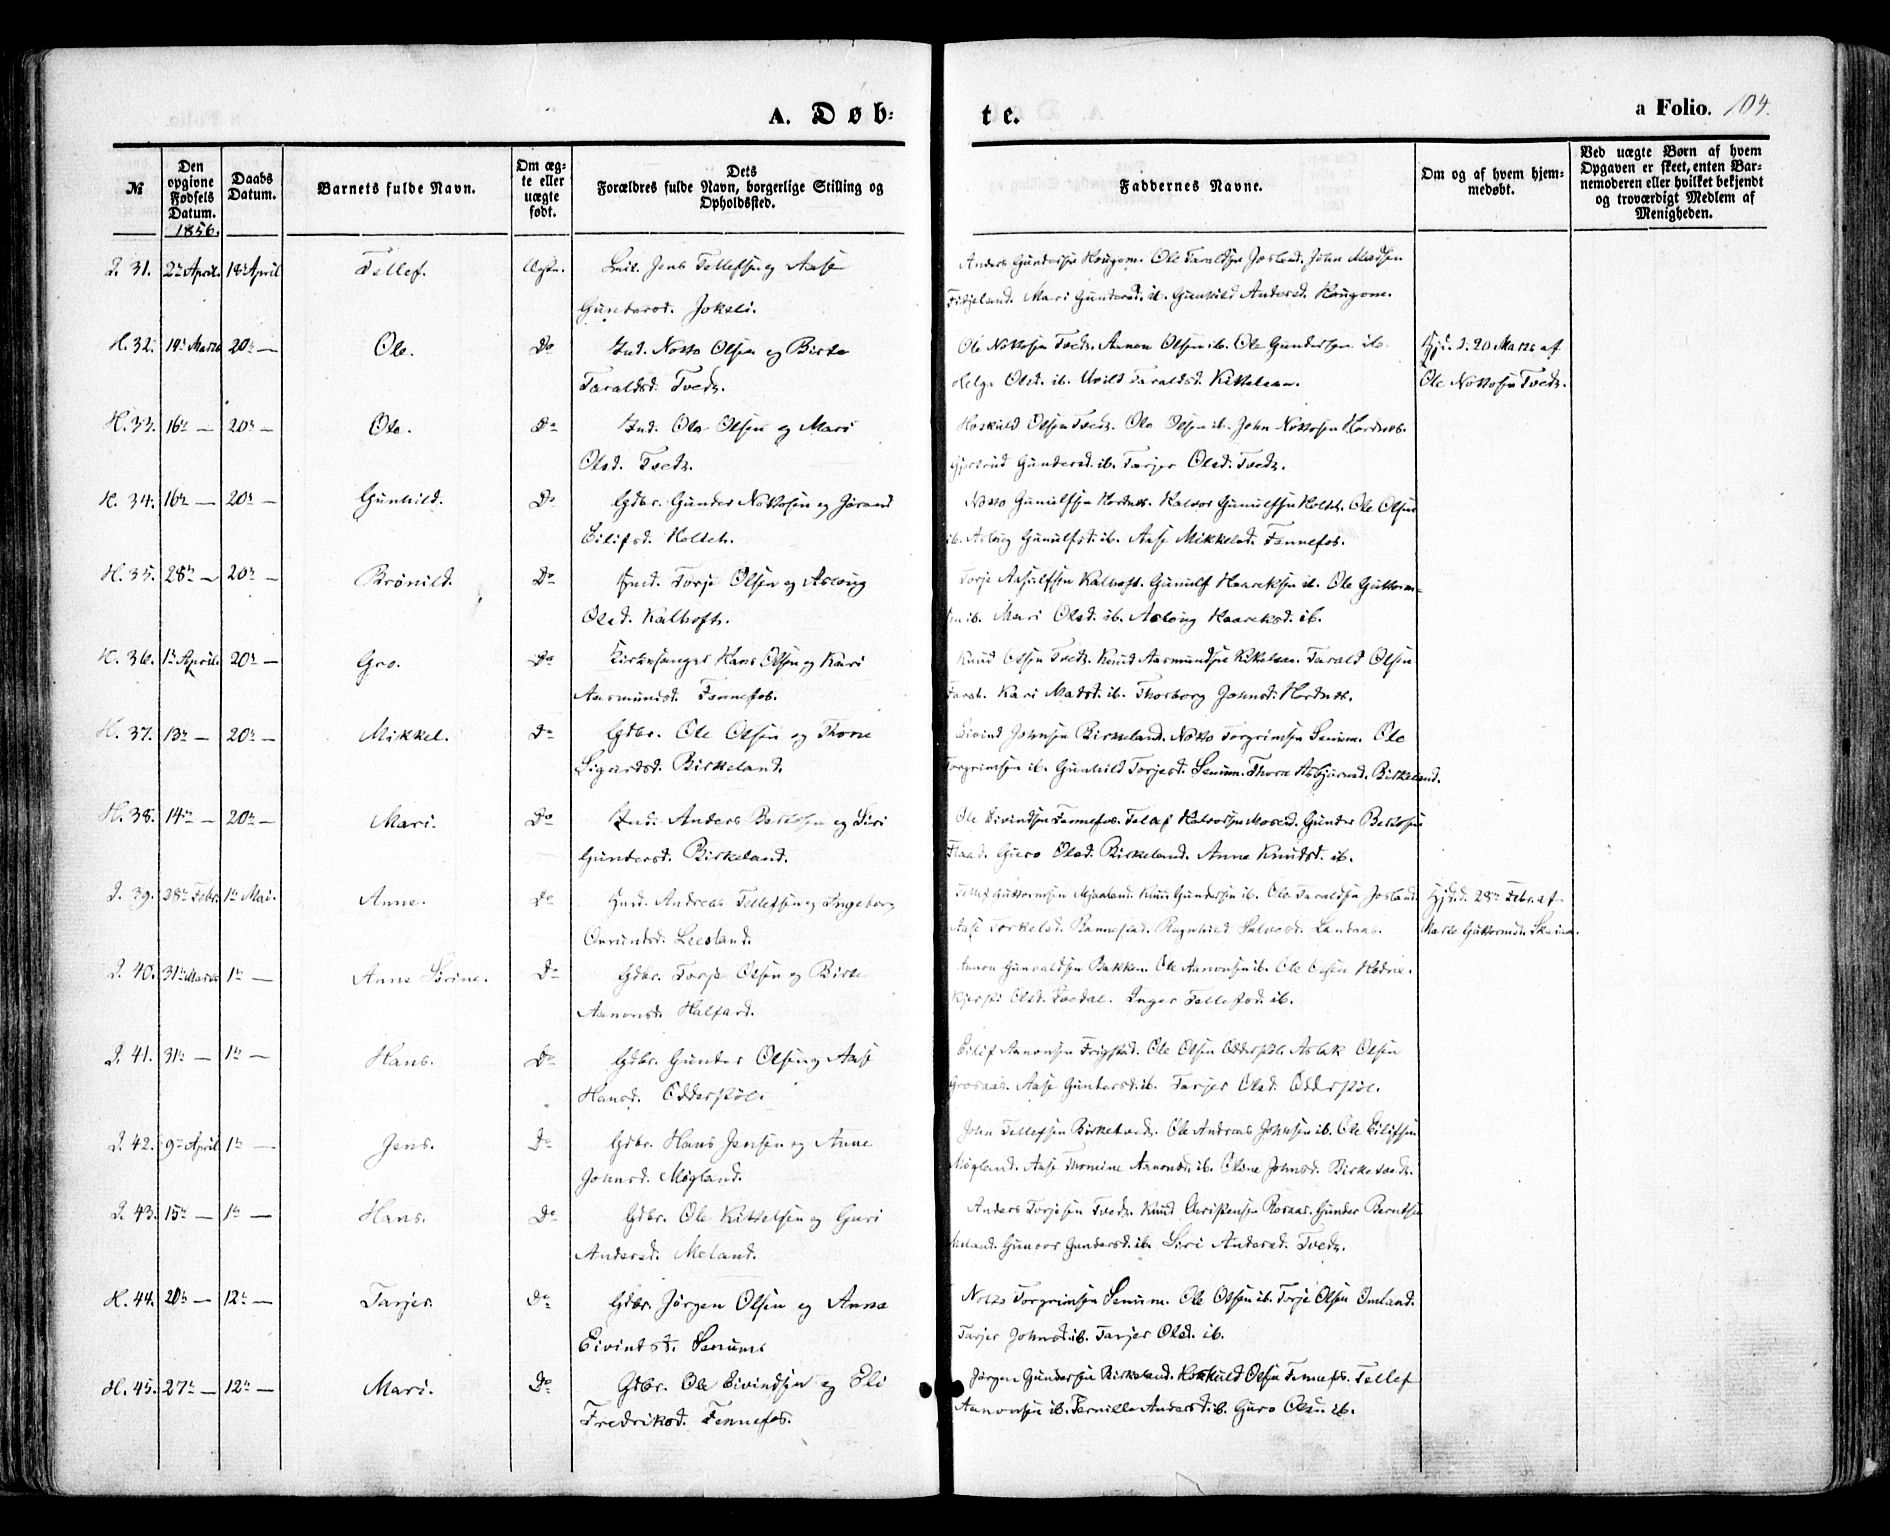 A. Døb-
te.
a Folio. 104.
№
Den opgivne Fødsels Datum.
1856.
Daabs Datum.
Barnets fulde Navn.
Om ægte eller uægte født.
Dets Forældres fulde Navn, borgerlige Stilling og Opholdssted.
Faddernes Navne.
Om og af hvem hjemmedøbt.
Ved uægte Børn af hvem Opgaven er skeet, enten Barnemoderen eller hvilket bekjendt og troværdigt Medlem af Menigheden.
31. 2n April. 18n April Tellef. Ægte. Jens Tellefsen og Aase
Gundersd. Joksli.
Anders Gundersen Hougom. Ole Taraldsen Josland. John Madsen
Fidjeland. Mari Gundersd. ib. Gunhild Andersd. Hougom.
H. 32. 19n Marts 20n — Ole. Do Ind. Notto Olsen og Birte
Taraldsd. Tvedt.
Ole Nottosen Tvedt. Aanon Olsen ib. Ole Gundersen ib.
Helge Olsd. ib. Taraldsd. Kittelsaa.
Hjd. d. 20 Marts af
Ole Nottosen Tvedt.
H. 33. 16n — 20n — Ole. Do Ind. Ole Olsen og Mari
Olsd. Tvedt.
Høskuld Olsen Tvedt. Ole Olsen ib. John Nottosen Hordnes.
Gundersd. ib. Tarjer Olsd. Tvedt.
H. 34. 16n — 20n — Gunhild. Do Gdbr. Gunder Nottosen og Jorand
Eilifsd. Holteh.
Notto Gunulfsen Hordnes. Halvor Gunulfsen Holteh. Ole Olsen
ib. Aslaug Gunulfsd. ib. Aase Mikkelsd. Fennefos.
H. 35. 28n — 20n — Brønild. Do Ind. Torje Olsen og Aslaug
Olsd. Kalhoft.
Torje Aasulfsen Kalhoft. Gunulf Haareksen ib. Ole Guttorm-
sen ib. Mari Olsd. ib. Aslaug Haareksd. ib.
H. 36. 1n April. 20n — Gro. Do Kirkesanger Hans Olsen og Kari
Aasmundsd. Fennefos.
Knud Olsen Tvedt. Knud Aasmundsen Kittelsaa. Tarald Olsen
Kari Madsd. ib. Thorborg Johnsd. Hordnes.
H. 37. 13n — 20n — Mikkel. Do Gdbr. Ole Olsen og Thore
Sigurdsd. Birkeland.
Eivind Johnsen Birkeland. Notto Torgrimsen Senum. Ole
Torgrimsen ib. Gunhild Torjesd. Senum. Thora Asbjørnsd. Birkeland.
H. 38. 14n — 20n — Mari. Do Ind. Anders Bentsen og Siri
Gundersd. Birkeland.
Ole Eivindsen Fennefos. Tellef Halvorsen Gunder Bentsen
Flaad. Guro Olsd. Birkeland. Anne Knudsd. ib.
39. 28n Febr. 1n Mai. Anne. Do Andreas Tellefsen og Ingeborg
Onundsd. Liesland.
Tellef Guttormsen Mjaaland. Knud Gundersen ib. Ole Taraldsen Josland.
Aase Torkelsd. Bannestad. Ragnhild Salvesd. Landaas.
Hjd. d. 28n Febr. af
Guttormsd.
40. 31n Marts 1n — Anne Serine. Do Gdbr. Torje Olsen og Birte
Aanonsd. Halfard.
Aanon Gunvaldsen Bakken. Ole Aanonsen ib. Ole Olsen
Olsd. Tvedal. Inger Tellefsd. ib.
41. 31n — 1n — Hans. Do Gdbr. Gunder Olsen og Aase
Hansd. Odderstøl.
Eilif Aanonsen Frigstad. Ole Olsen Odderstøl. Aslak Olsen
Grosaas. Aase Gundersd. ib. Tarjer Olsd. Odderstøl.
42. 9n April 1n — Jens. Do Gdbr. Hans Jensen og Anne
Johnsd. Møgland.
John Tellefsen Birketvedt. Ole Andreas Johnsen ib. Ole Eilifsen
Møgland. Aase Thomine Aanonsd. ib. Oline Johnsd. Birketvedt.
43. 15n — 1n — Hans. Do Gdbr. Ole Kittelsen og Guri
Andersd. Meland.
Anders Torjesen Tvedt. Knud Christensen Rosaas. Gunder Berntsen
Meland. Gunvor Gundersd. ib. Siri Andersd. Tvedt.
H. 44. 20n — 12n — Tarjer. Do Gdbr. Jørgen Olsen og Anne
Eivindsd. Senum.
Notto Torgrimsen Senum. Ole Olsen ib. Torje Olsen Omland.
Tarjer Johnsd. ib. Tarjer Olsd. ib.
H. 45. 27n — 12n — Mari. Do Gdbr. Ole Eivindsen og Eli
Fredriksd. Fennefos.
Jørgen Gundersen Birkeland. Høskuld Olsen Fennefos. Tellef
Aanonsen ib. Pernille Andersd. ib. Guro Olsen ib.